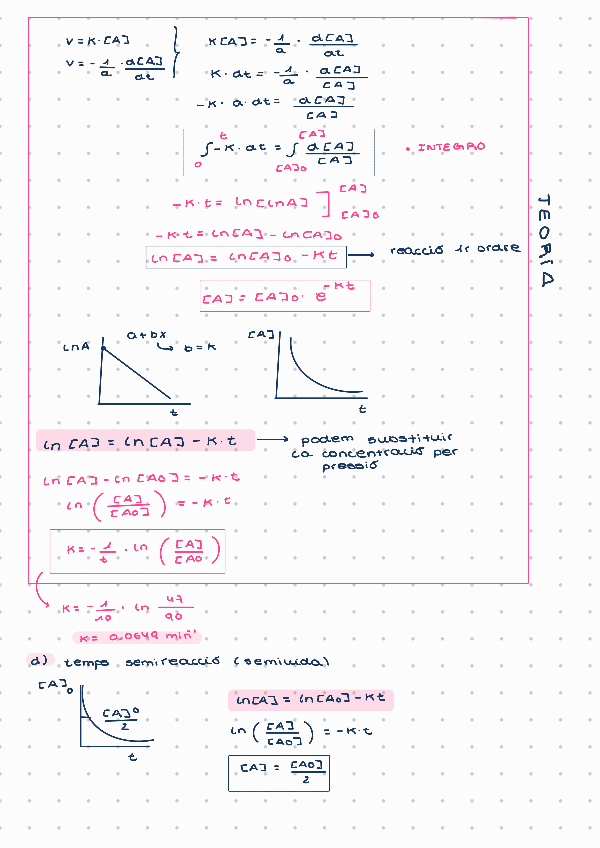 v = k · [A]
v = - 1/a · d[A]/dt
k[A] = - 1/a · d[A]/dt
k · dt = - 1/a · d[A]/[A]
-k · a · dt = d[A]/[A]
∫₀ᵗ -k · dt = ∫_{[A]₀}^{[A]} d[A]/[A]
• INTEGRO
-k · t = ln[lnA] ]_{[A]₀}^{[A]}
-k · t = ln[A] - ln[A]₀
ln[A] = ln[A]₀ - kt → reacció 1r ordre
[A] = [A]₀ · e^{-kt}
TEORIA
lnA
a + bx
↳ b = k
t
[A]
t
ln [A] = ln [A] - k · t → podem substituir
la concentració per
pressió
ln [A] - ln [A0] = -k · t
ln ([A]/[A0]) = -k · t
k = - 1/t · ln ([A]/[A0])
k = - 1/10 · ln 47/90
k = 0.0649 min⁻¹
d) temps semireacció (semivida)
[A]₀
[A]⁰/2
t
ln[A] = ln[A0] - kt
ln ([A]/[A0]) = -k · t
[A] = [A0]/2